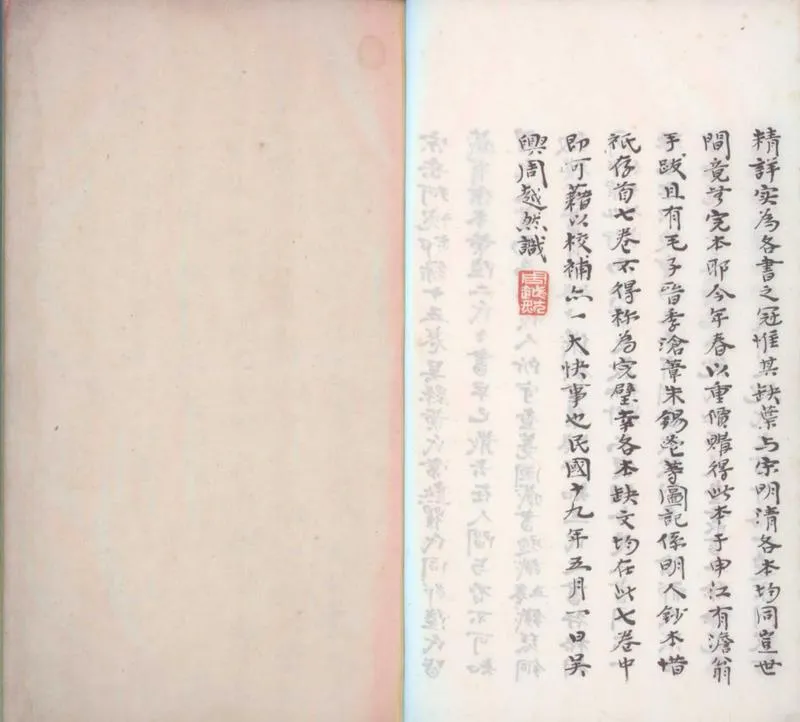 精詳实為各書之冠惟其缺葉与宋明清各本均同豈世
間竟無完本耶今年春以重價購得此本于申江有澹翁
手跋且有毛子晋季滄葦朱錫鬯等圖記係明人鈔本惜
衹存首七卷不得称為完璧幸各本缺文均在此七卷中
即可藉以校補亦一大快事也民國十九年五月一日吴
興周越然識
周越然